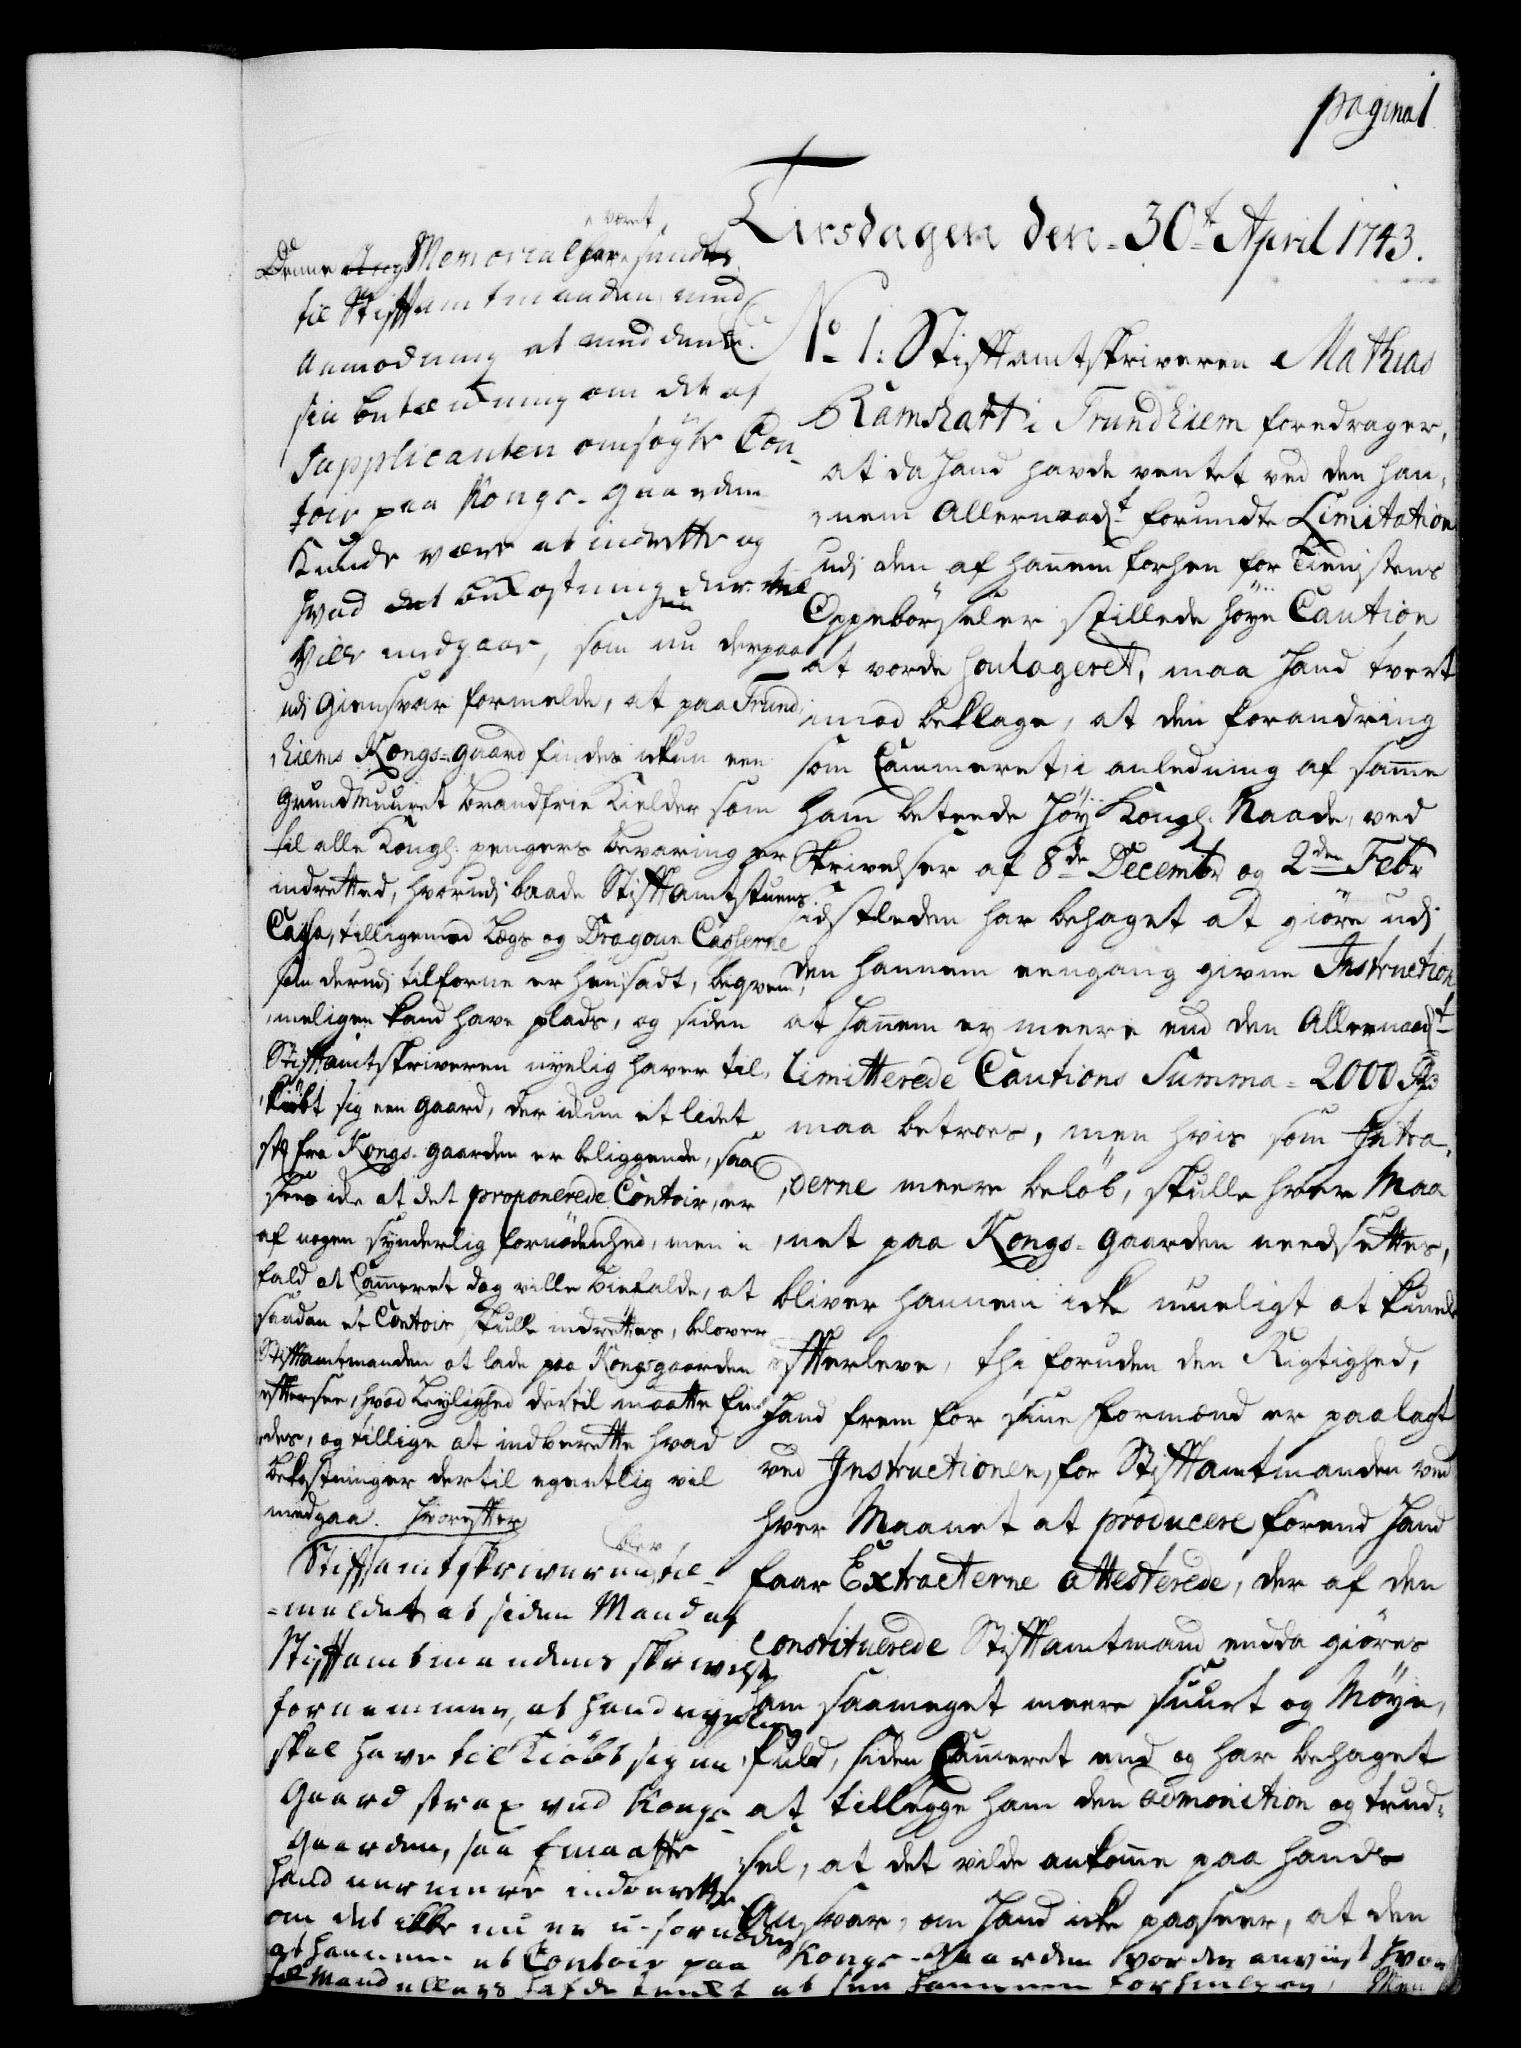 pagina 1
Tirsdagen den 30t April 1743.
No 1: Stifftamtskriveren Mathias
Ramshart i Trundhiem foredrager,
at da hand havde ventet ved den han¬
nem Allernaadt forundte Limitation
udj den af hannem forhen for Tienistens
Oppebörseler stillede höye Caution
at vorde soulageret, maa hand tvert
imod beklage, at den forandring
som Cammeret i anledning af samme
ham beteede höy Kongl: Naade, ved
Skrivelser af 8de Decembr og 2den Febr
sidstleden har behaget at giöre udj
den hannem eengang givne Instruction
at hannem ey meere end den Allernaadt
limitterede Cautions Summa = 2000 Rdr
maa betroes, men hvis som Intra¬
derne meere belöb, skulle hver Maa
net paa Kongs-gaarden needsettes,
bliver hannem icke mueligt at kunde
effterleve, thi foruden den Rigtighed,
hand frem for sine Formænd er paalagt
ved Instructionen, for Stifftamtmanden ved
hver Maanet at producere förend hand
faar Extracterne attesterede, der af den
constituerede Stifftamtmand endda giöres
ham saameget meere suurt og Möye¬
fuld, siden Cammeret end og har behaget
at tillegge ham den admonition og trud¬
sel, at det vilde ankomme paa hands
Ansvar, om hand icke paaseer, at den
Denne Memorial have været sendt
til Stifftamtmanden med
Anmodning at meddeele
sin betænkning om det af
Supplicanten omsögte Con¬
toir paa Kongs-gaarden
kunde være at indrette og
hvad bekostning der til
ville medgaae, som nu derpaa
udj Giensvar formelde, at paa Trund
hiems Kongs-gaard findes ickun een
Grundmuuret brandfrie Kielder som
til alle Kongl: pengers bevaring er
indretted, hvorudj baade Stifftamtstuens
Cassa, tilligemed Legs og Dragoun Casserne
som derudj tilforne er hensadt, beqvem¬
meligen kand have plads, og siden
Stifftamtskriveren nyelig haver til¬
kiöbt sig een gaard, der ickun et lidet
stk fra Kongs-gaarden er beliggende, saa
sees icke at det proponerede Contoir, er
af nogen synderlig fornödenhed, men i
fald at Cammeret dog ville biefalde, at
saadan et Contoir skulle indrettes, belover
Stifftamtmanden at lade paa Kongsgaarden
effterse, hvad Leylighed dertil maatte fin
des, og tillige at indberette hvad
bekostninger dertil egentlig vil
medgaa. Hvoreffter
Stifftamtskriveren blev til¬
meldet at siden Mand af
Stifftamtmandens skrivelse
fornemmer, at hand nyelig
skal have tilkiöbt sig en
Gaard strax ved Kongs¬
gaarden, saa maatte
hand nermere indberette
om det ikke nu er u-fornöden
at hannem et Contoir paa Kongs-gaarden vorder anviist hvor
til Mand ellers hafde tenkt at see hannem forhiulpen, Men